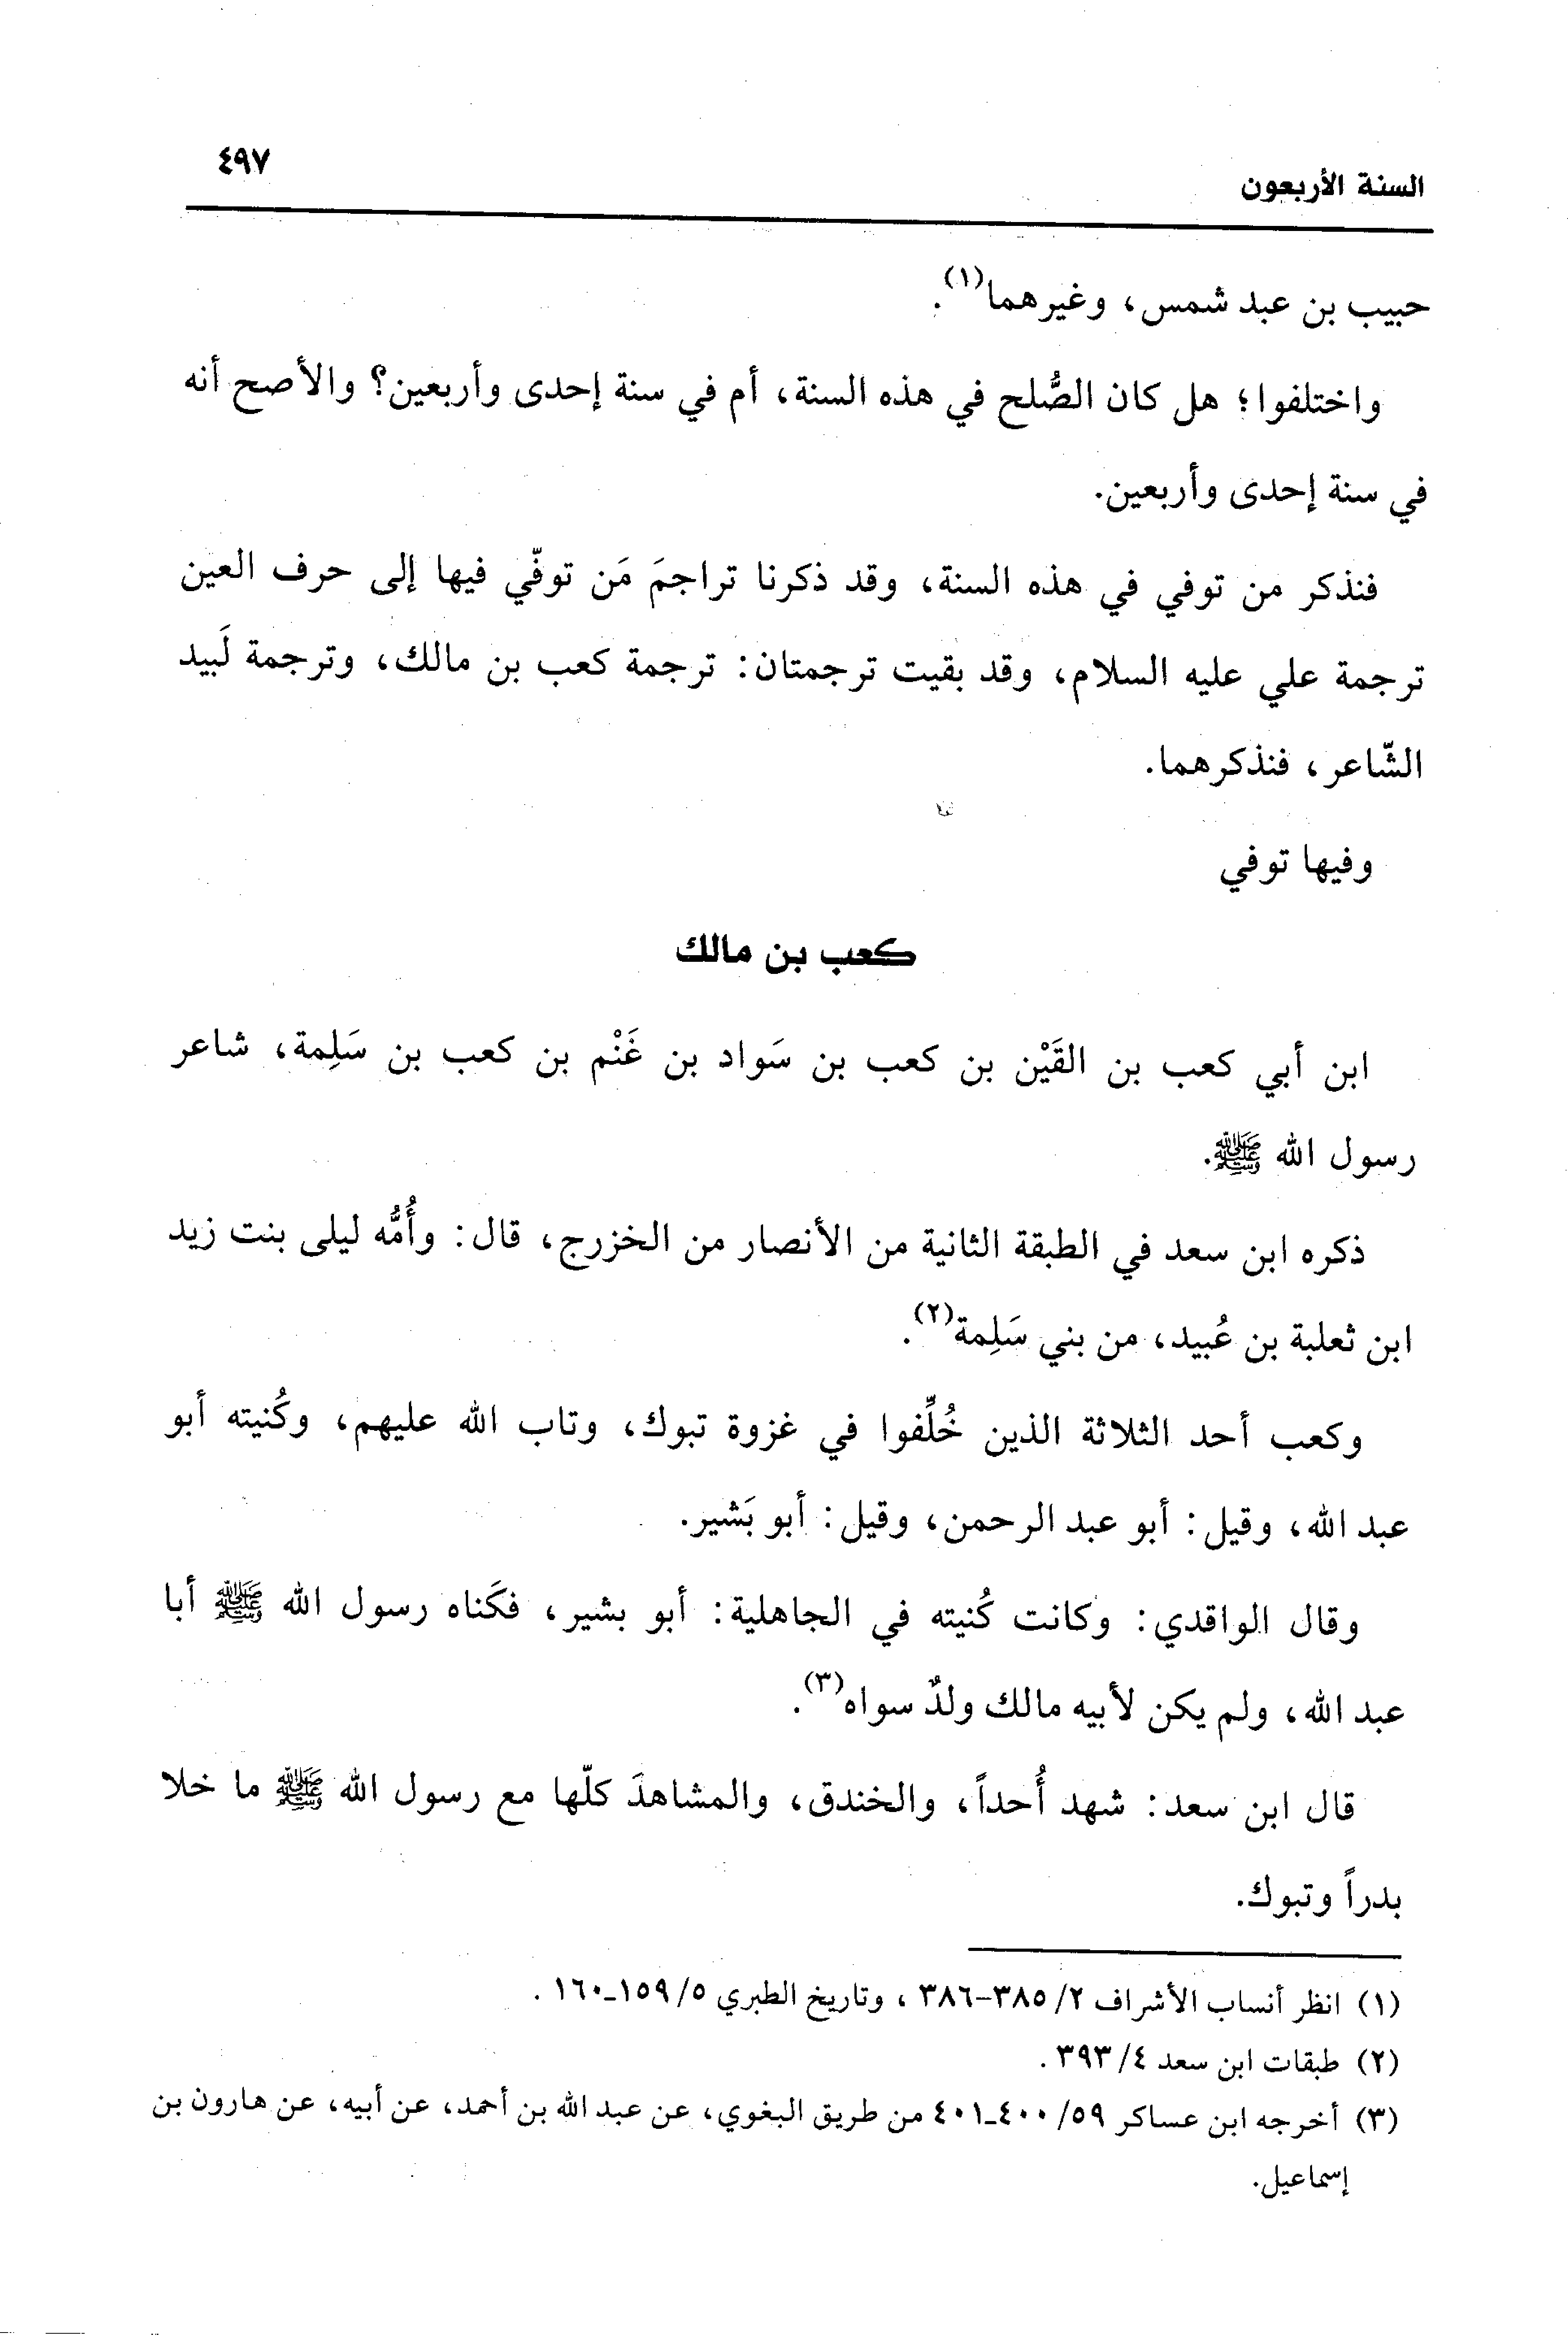 السنة الأربعون
٤٩٧
حبيب بن عبد شمس، وغيرهما(١).
واختلفوا؛ هل كان الصُّلح في هذه السنة، أم في سنة إحدى وأربعين؟ والأصح أنه
في سنة إحدى وأربعين.
فنذكر من توفي في هذه السنة، وقد ذكرنا تراجمَ مَن توفّي فيها إلى حرف العين
ترجمة علي عليه السلام، وقد بقيت ترجمتان: ترجمة كعب بن مالك، وترجمة لَبيد
الشّاعر، فنذكرهما.
وفيها توفي
كعب بن مالك
ابن أبي كعب بن القَيْن بن كعب بن سَواد بن غَنْم بن كعب بن سَلِمة، شاعر
رسول الله ﷺ.
ذكره ابن سعد في الطبقة الثانية من الأنصار من الخزرج، قال: وأُمُّه ليلى بنت زيد
ابن ثعلبة بن عُبيد، من بني سَلِمة(٢).
وكعب أحد الثلاثة الذين خُلِّفوا في غزوة تبوك، وتاب الله عليهم، وكُنيته أبو
عبد الله، وقيل: أبو عبد الرحمن، وقيل: أبو بَشير.
وقال الواقدي: وكانت كُنيته في الجاهلية: أبو بشير، فكَناه رسول الله ﷺ أبا
عبد الله، ولم يكن لأبيه مالك ولدٌ سواه(٣).
قال ابن سعد: شهد أُحداً، والخندق، والمشاهدَ كلّها مع رسول الله ﷺ ما خلا
بدراً وتبوك.
(١) انظر أنساب الأشراف ٢/ ٣٨٥-٣٨٦ ، وتاريخ الطبري ٥/ ١٥٩-١٦٠ .
(٢) طبقات ابن سعد ٤/ ٣٩٣ .
(٣) أخرجه ابن عساكر ٥٩/ ٤٠٠-٤٠١ من طريق البغوي، عن عبد الله بن أحمد، عن أبيه، عن هارون بن
إسماعيل.